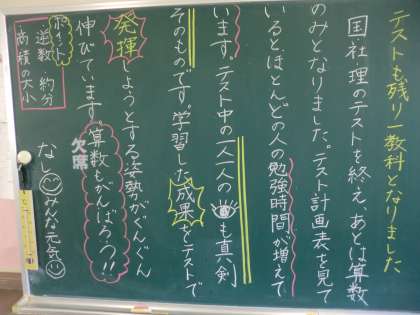 テストも残り一教科となりました
国・社・理のテストを終え、あとは算数
のみとなりました。テスト計画表を見て
いると、ほとんどの人の勉強時間が増えて
います。テスト中の一人一人の👁も真剣
そのものです。学習した成果をテストで
発揮しようとする姿勢がぐんぐん
伸びています。算数もがんばろう!!
ポイント
逆数 約分
商積の大小
欠席
なし☺みんな元気☺